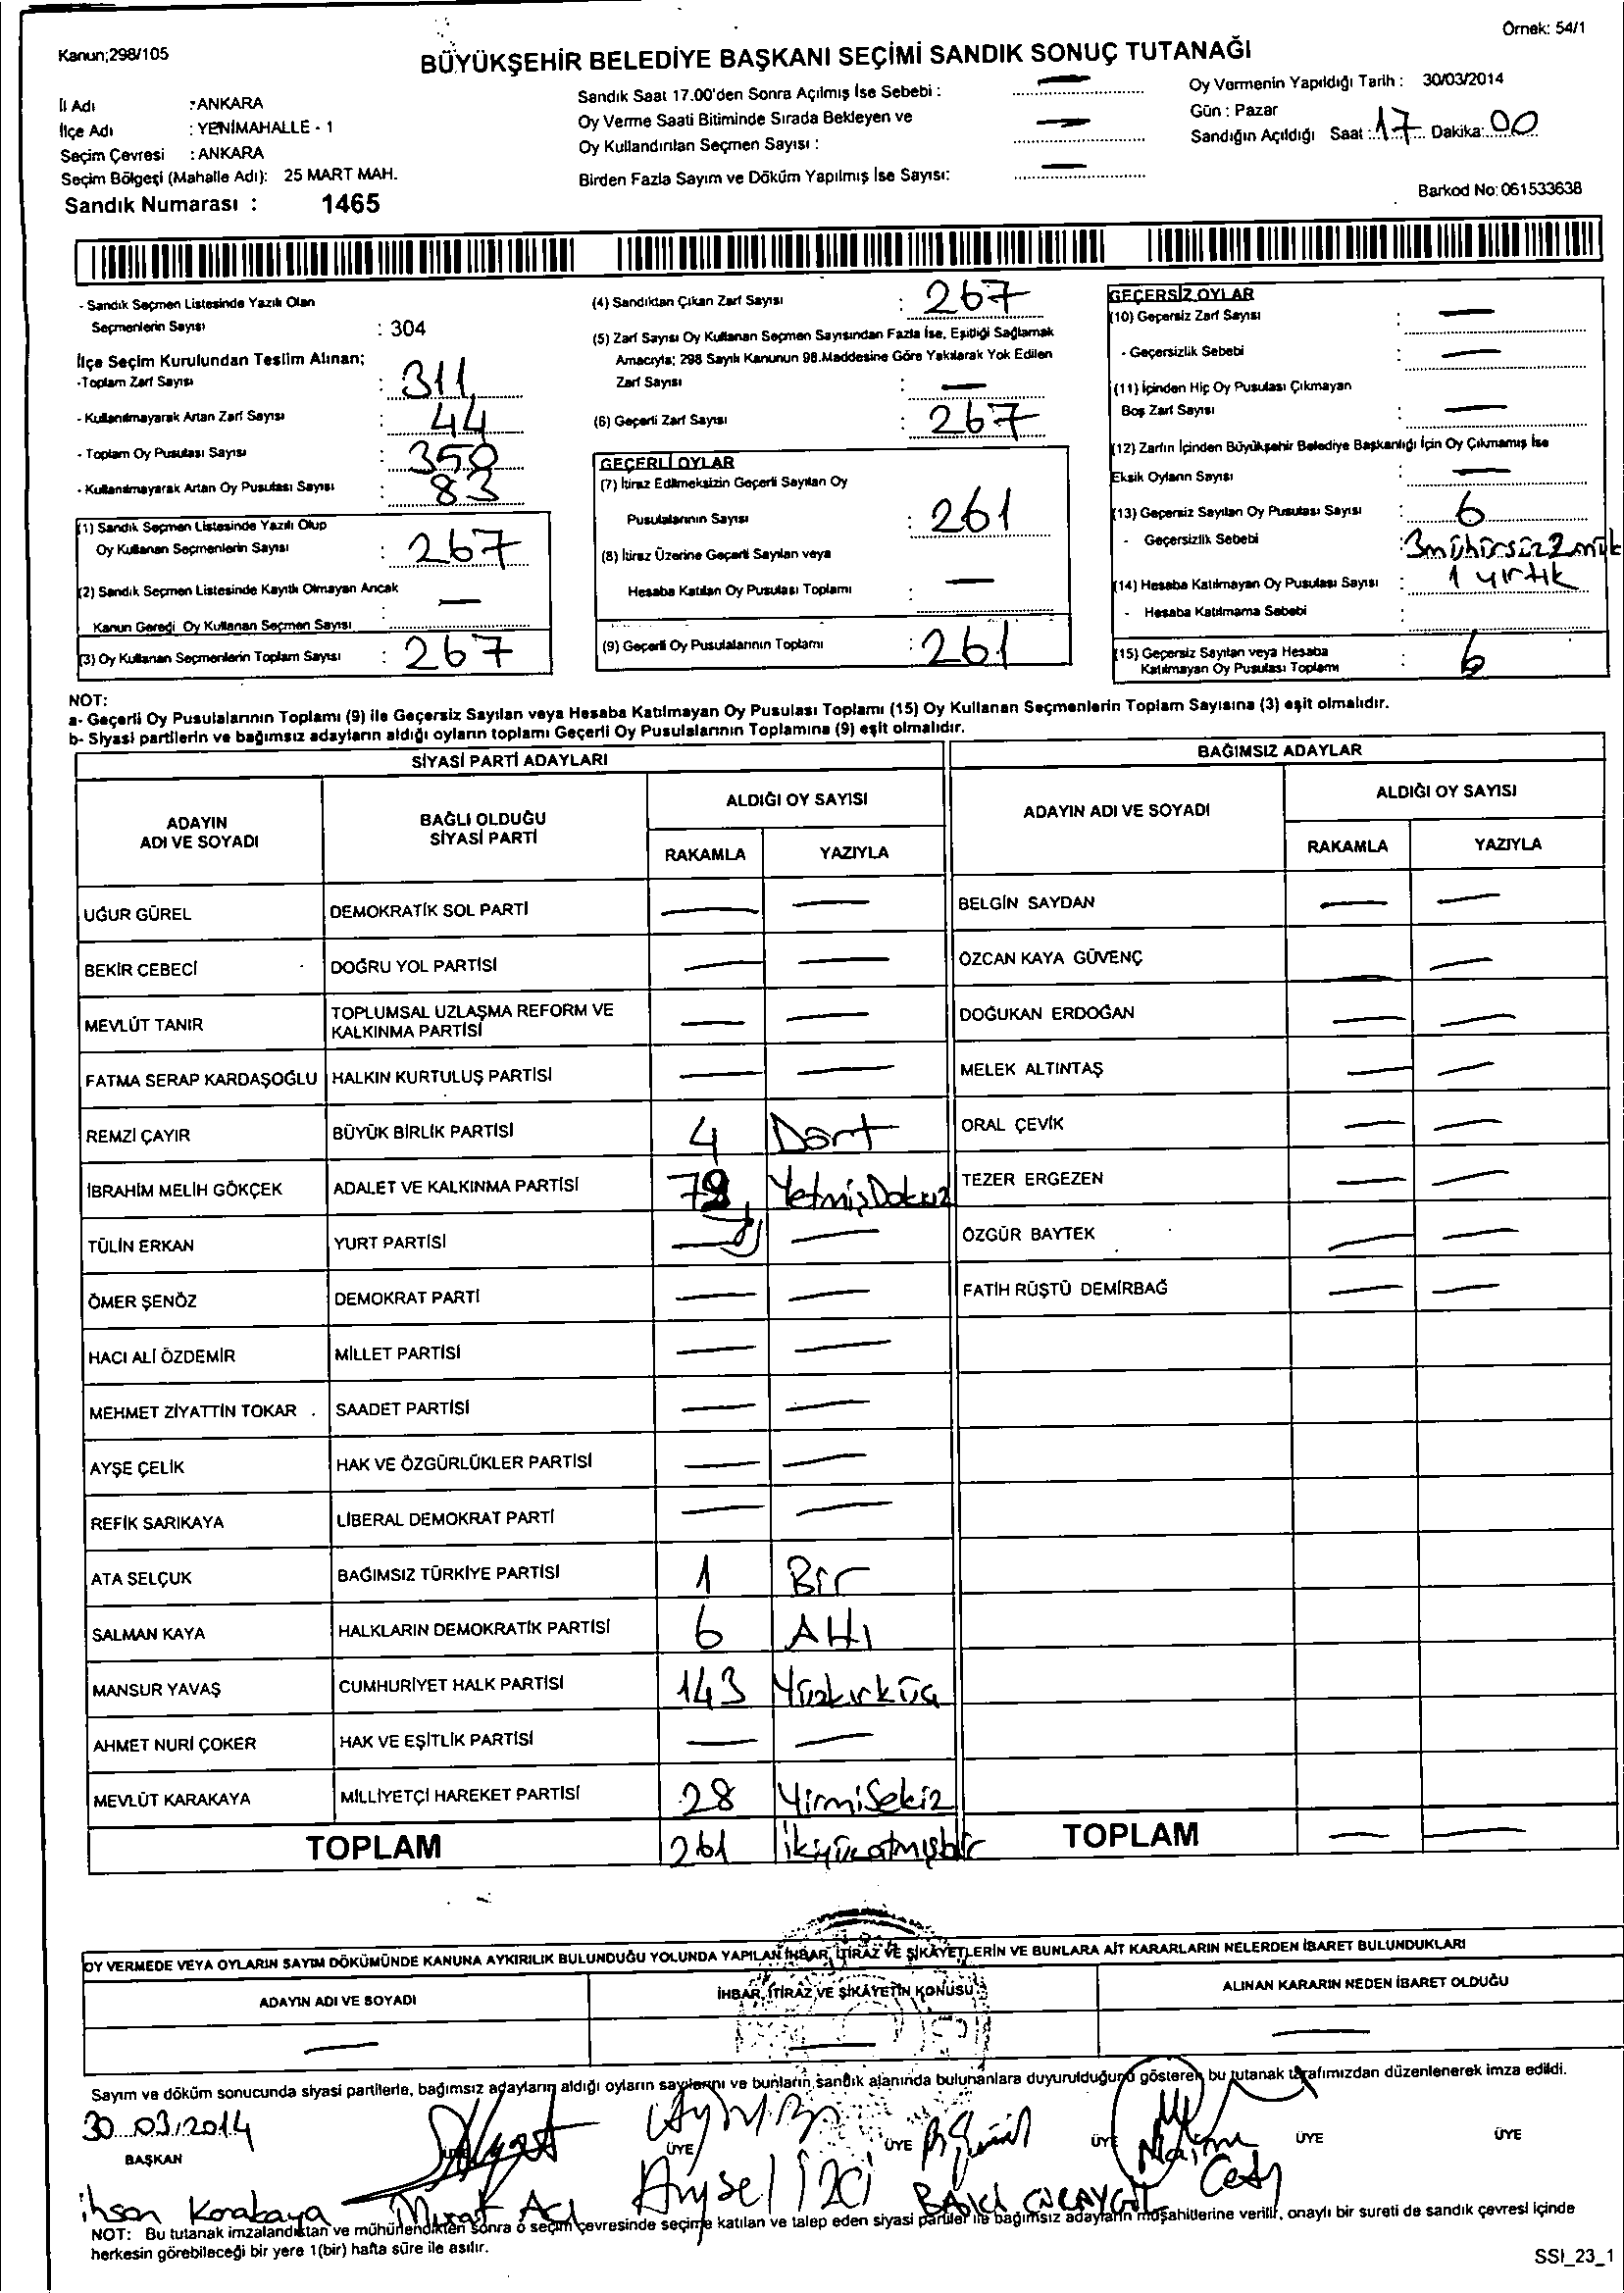 Örnek: 54/1
Kanun;298/105
BÜYÜKŞEHİR BELEDİYE BAŞKANI SEÇİMİ SANDIK SONUÇ TUTANAĞI
İl Adı : ANKARA
İlçe Adı : YENİMAHALLE - 1
Seçim Çevresi : ANKARA
Seçim Bölgesi (Mahalle Adı): 25 MART MAH.
Sandık Numarası : 1465
Sandık Saat 17.00'den Sonra Açılmış İse Sebebi : —
Oy Verme Saati Bitiminde Sırada Bekleyen ve
Oy Kullandırılan Seçmen Sayısı : —
Birden Fazla Sayım ve Döküm Yapılmış İse Sayısı: —
Oy Vermenin Yapıldığı Tarih : 30/03/2014
Gün : Pazar
Sandığın Açıldığı Saat : 17 Dakika: 00
Barkod No: 061533638
- Sandık Seçmen Listesinde Yazılı Olan
Seçmenlerin Sayısı : 304
İlçe Seçim Kurulundan Teslim Alınan;
-Toplam Zarf Sayısı : 311
- Kullanılmayarak Artan Zarf Sayısı : 44
- Toplam Oy Pusulası Sayısı : 350
- Kullanılmayarak Artan Oy Pusulası Sayısı : 83
(1) Sandık Seçmen Listesinde Yazılı Olup
Oy Kullanan Seçmenlerin Sayısı : 267
(2) Sandık Seçmen Listesinde Kayıtlı Olmayan Ancak
Kanun Gereği Oy Kullanan Seçmen Sayısı : —
(3) Oy Kullanan Seçmenlerin Toplam Sayısı : 267
(4) Sandıktan Çıkan Zarf Sayısı : 267
(5) Zarf Sayısı Oy Kullanan Seçmen Sayısından Fazla İse, Eşitliği Sağlamak
Amacıyla; 298 Sayılı Kanunun 98.Maddesine Göre Yakılarak Yok Edilen
Zarf Sayısı : —
(6) Geçerli Zarf Sayısı : 267
GEÇERLİ OYLAR
(7) İtiraz Edilmeksizin Geçerli Sayılan Oy
Pusulalarının Sayısı : 261
(8) İtiraz Üzerine Geçerli Sayılan veya
Hesaba Katılan Oy Pusulası Toplamı : —
(9) Geçerli Oy Pusulalarının Toplamı : 261
GEÇERSİZ OYLAR
(10) Geçersiz Zarf Sayısı : —
- Geçersizlik Sebebi : —
(11) İçinden Hiç Oy Pusulası Çıkmayan
Boş Zarf Sayısı : —
(12) Zarfın İçinden Büyükşehir Belediye Başkanlığı İçin Oy Çıkmamış İse
Eksik Oyların Sayısı : —
(13) Geçersiz Sayılan Oy Pusulası Sayısı : 6
- Geçersizlik Sebebi : 3 mühürsüz 2 mük
1 yırtık
(14) Hesaba Katılmayan Oy Pusulası Sayısı :
- Hesaba Katılmama Sebebi :
(15) Geçersiz Sayılan veya Hesaba
Katılmayan Oy Pusulası Toplamı : 6
NOT:
a- Geçerli Oy Pusulalarının Toplamı (9) ile Geçersiz Sayılan veya Hesaba Katılmayan Oy Pusulası Toplamı (15) Oy Kullanan Seçmenlerin Toplam Sayısına (3) eşit olmalıdır.
b- Siyasi partilerin ve bağımsız adayların aldığı oyların toplamı Geçerli Oy Pusulalarının Toplamına (9) eşit olmalıdır.
SİYASİ PARTİ ADAYLARI
ADAYIN ADI VE SOYADI
BAĞLI OLDUĞU SİYASİ PARTİ
ALDIĞI OY SAYISI
RAKAMLA YAZIYLA
UĞUR GÜREL DEMOKRATİK SOL PARTİ — —
BEKİR CEBECİ DOĞRU YOL PARTİSİ — —
MEVLÜT TANIR TOPLUMSAL UZLAŞMA REFORM VE KALKINMA PARTİSİ — —
FATMA SERAP KARDAŞOĞLU HALKIN KURTULUŞ PARTİSİ — —
REMZİ ÇAYIR BÜYÜK BİRLİK PARTİSİ 4 Dört
İBRAHİM MELİH GÖKÇEK ADALET VE KALKINMA PARTİSİ 79 YetmişDokuz
TÜLİN ERKAN YURT PARTİSİ — —
ÖMER ŞENÖZ DEMOKRAT PARTİ — —
HACI ALİ ÖZDEMİR MİLLET PARTİSİ — —
MEHMET ZİYATTİN TOKAR SAADET PARTİSİ — —
AYŞE ÇELİK HAK VE ÖZGÜRLÜKLER PARTİSİ — —
REFİK SARIKAYA LİBERAL DEMOKRAT PARTİ — —
ATA SELÇUK BAĞIMSIZ TÜRKİYE PARTİSİ 1 Bir
SALMAN KAYA HALKLARIN DEMOKRATİK PARTİSİ 6 Altı
MANSUR YAVAŞ CUMHURİYET HALK PARTİSİ 143 Yüzkırküç
AHMET NURİ ÇOKER HAK VE EŞİTLİK PARTİSİ — —
MEVLÜT KARAKAYA MİLLİYETÇİ HAREKET PARTİSİ 28 YirmiSekiz
TOPLAM 261 İkiyüzatmışbir
BAĞIMSIZ ADAYLAR
ADAYIN ADI VE SOYADI
ALDIĞI OY SAYISI
RAKAMLA YAZIYLA
BELGİN SAYDAN — —
ÖZCAN KAYA GÜVENÇ — —
DOĞUKAN ERDOĞAN — —
MELEK ALTINTAŞ — —
ORAL ÇEVİK — —
TEZER ERGEZEN — —
ÖZGÜR BAYTEK — —
FATİH RÜŞTÜ DEMİRBAĞ — —
TOPLAM — —
OY VERMEDE VEYA OYLARIN SAYIM DÖKÜMÜNDE KANUNA AYKIRILIK BULUNDUĞU YOLUNDA YAPILAN İHBAR, İTİRAZ VE ŞİKAYETLERİN VE BUNLARA AİT KARARLARIN NELERDEN İBARET BULUNDUKLARI
ADAYIN ADI VE SOYADI
İHBAR, İTİRAZ VE ŞİKAYETİN KONUSU
ALINAN KARARIN NEDEN İBARET OLDUĞU
— — —
Sayım ve döküm sonucunda siyasi partilerle, bağımsız adayların aldığı oyların sayılarını ve bunların sandık alanında bulunanlara duyurulduğunu gösteren bu tutanak tarafımızdan düzenlenerek imza edildi.
30.03.2014
BAŞKAN ÜYE ÜYE ÜYE ÜYE ÜYE
ihsan Korakaya Murat Acı Aysel İzci Naime
NOT: Bu tutanak imzalandıktan ve mühürlendikten sonra o seçim çevresinde seçime katılan ve talep eden siyasi partiler ile bağımsız adayların müşahitlerine verilir, onaylı bir sureti de sandık çevresi içinde
herkesin görebileceği bir yere 1(bir) hafta süre ile asılır.
SSI_23_1